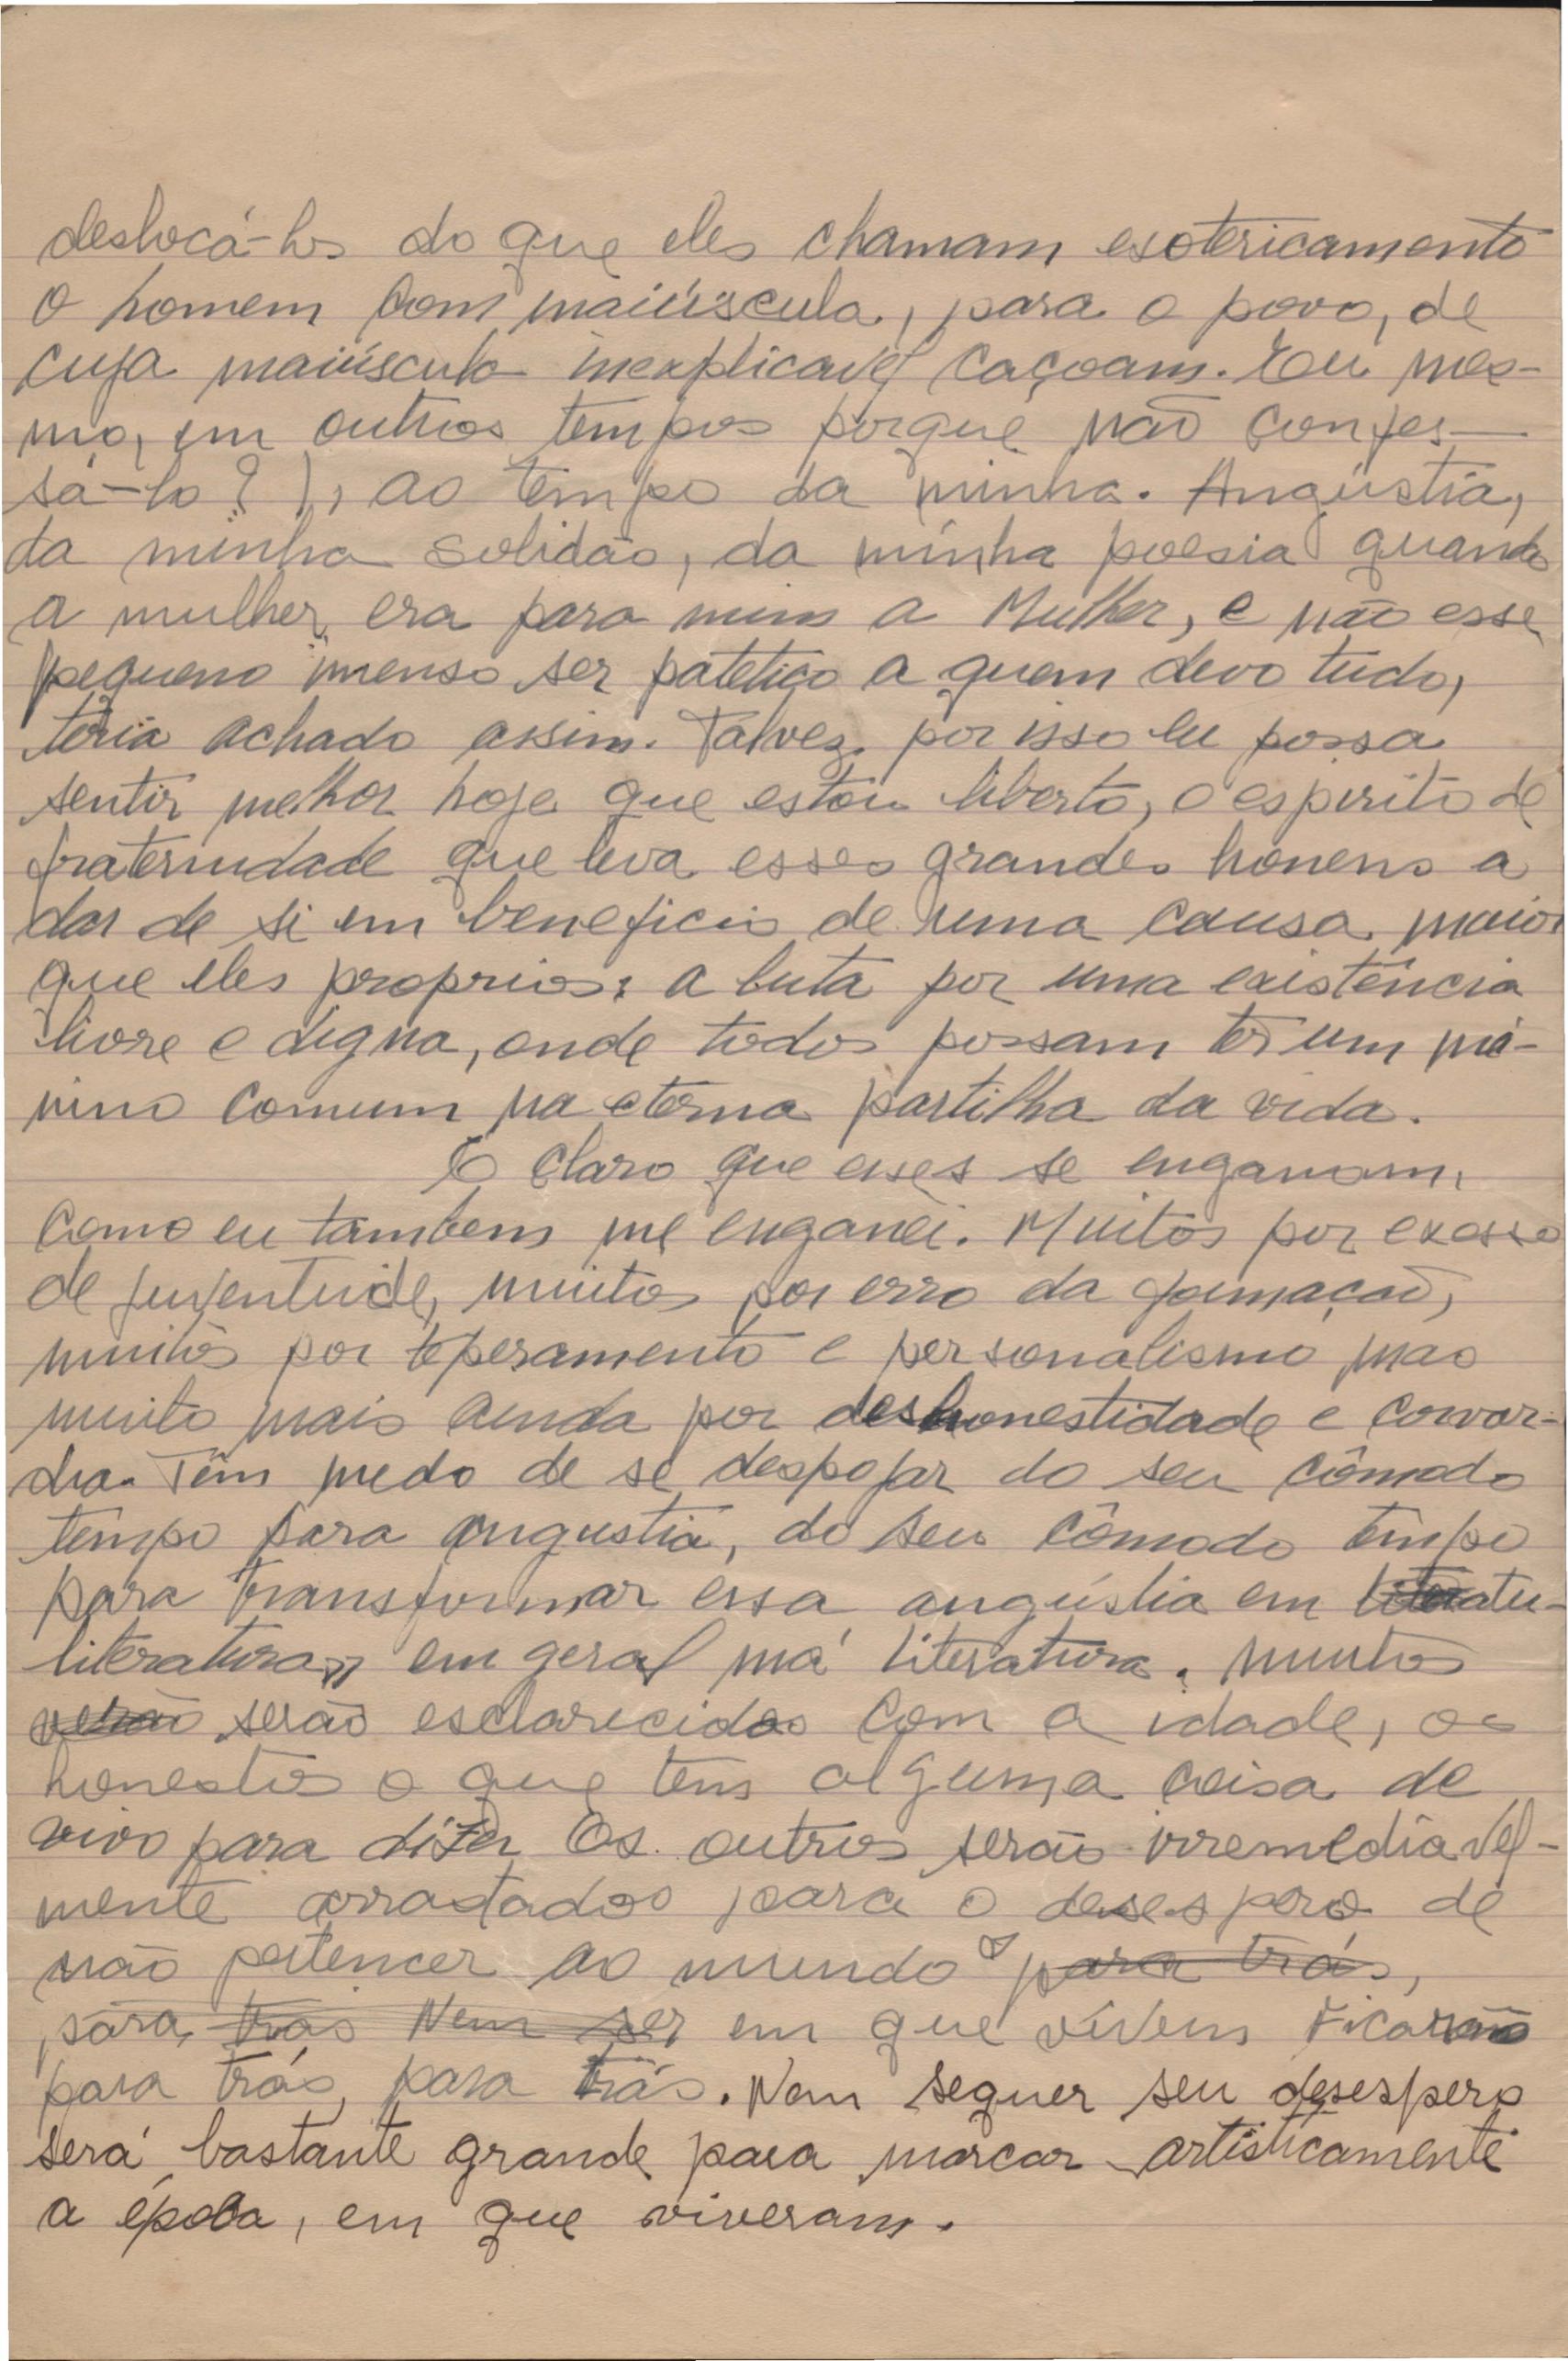 deslocá-los do que eles chamam esotericamente
o homem com maiúscula, para o povo, de
cuja maiúscula inexplicavel caçoam. Eu mes-
mo, em outros tempos porque não confes-
sá-lo?), ao tempo da minha. Angústia,
da minha solidão, da minha poesia quando
a mulher era para mim a Mulher, e não esse
pequeno imenso ser patetico a quem devo tudo,
teria achado assim. Talvez. por isso eu possa
sentir melhor hoje que estou liberto, o espirito de
fraternidade que leva esses grandes homens a
dar de si em beneficio de uma causa maior
que eles proprios: a luta por uma existência
livre e digna, onde todos possam ter um mí-
nimo comum na eterna partilha da vida.
É claro que eses se enganam,
como eu tambem me enganei. Muitos por exesso
de juventude, muitos por erro da formação,
muitos por teperamento e personalismo mas
muito mais ainda por deshonestidade e covar-
dia. Têm medo de se despojar do seu cômodo
tempo para angustia, do seu cômodo tempo
para transformar essa angústia em literatu-
literatura, em geral má literatura. Muitos
verão serão esclarecidos com a idade, os
honestos o que tem alguma coisa de
vivo para dizer Os outros serão irremediavel-
mente arrastados para o desespero de
não pertencer ao mundo para trás,
para trás Nem ser em que vivem Ficarão
para trás, para trás. Nem sequer seu desespero
será bastante grande para marcar artisticamente
a época, em que viveram.